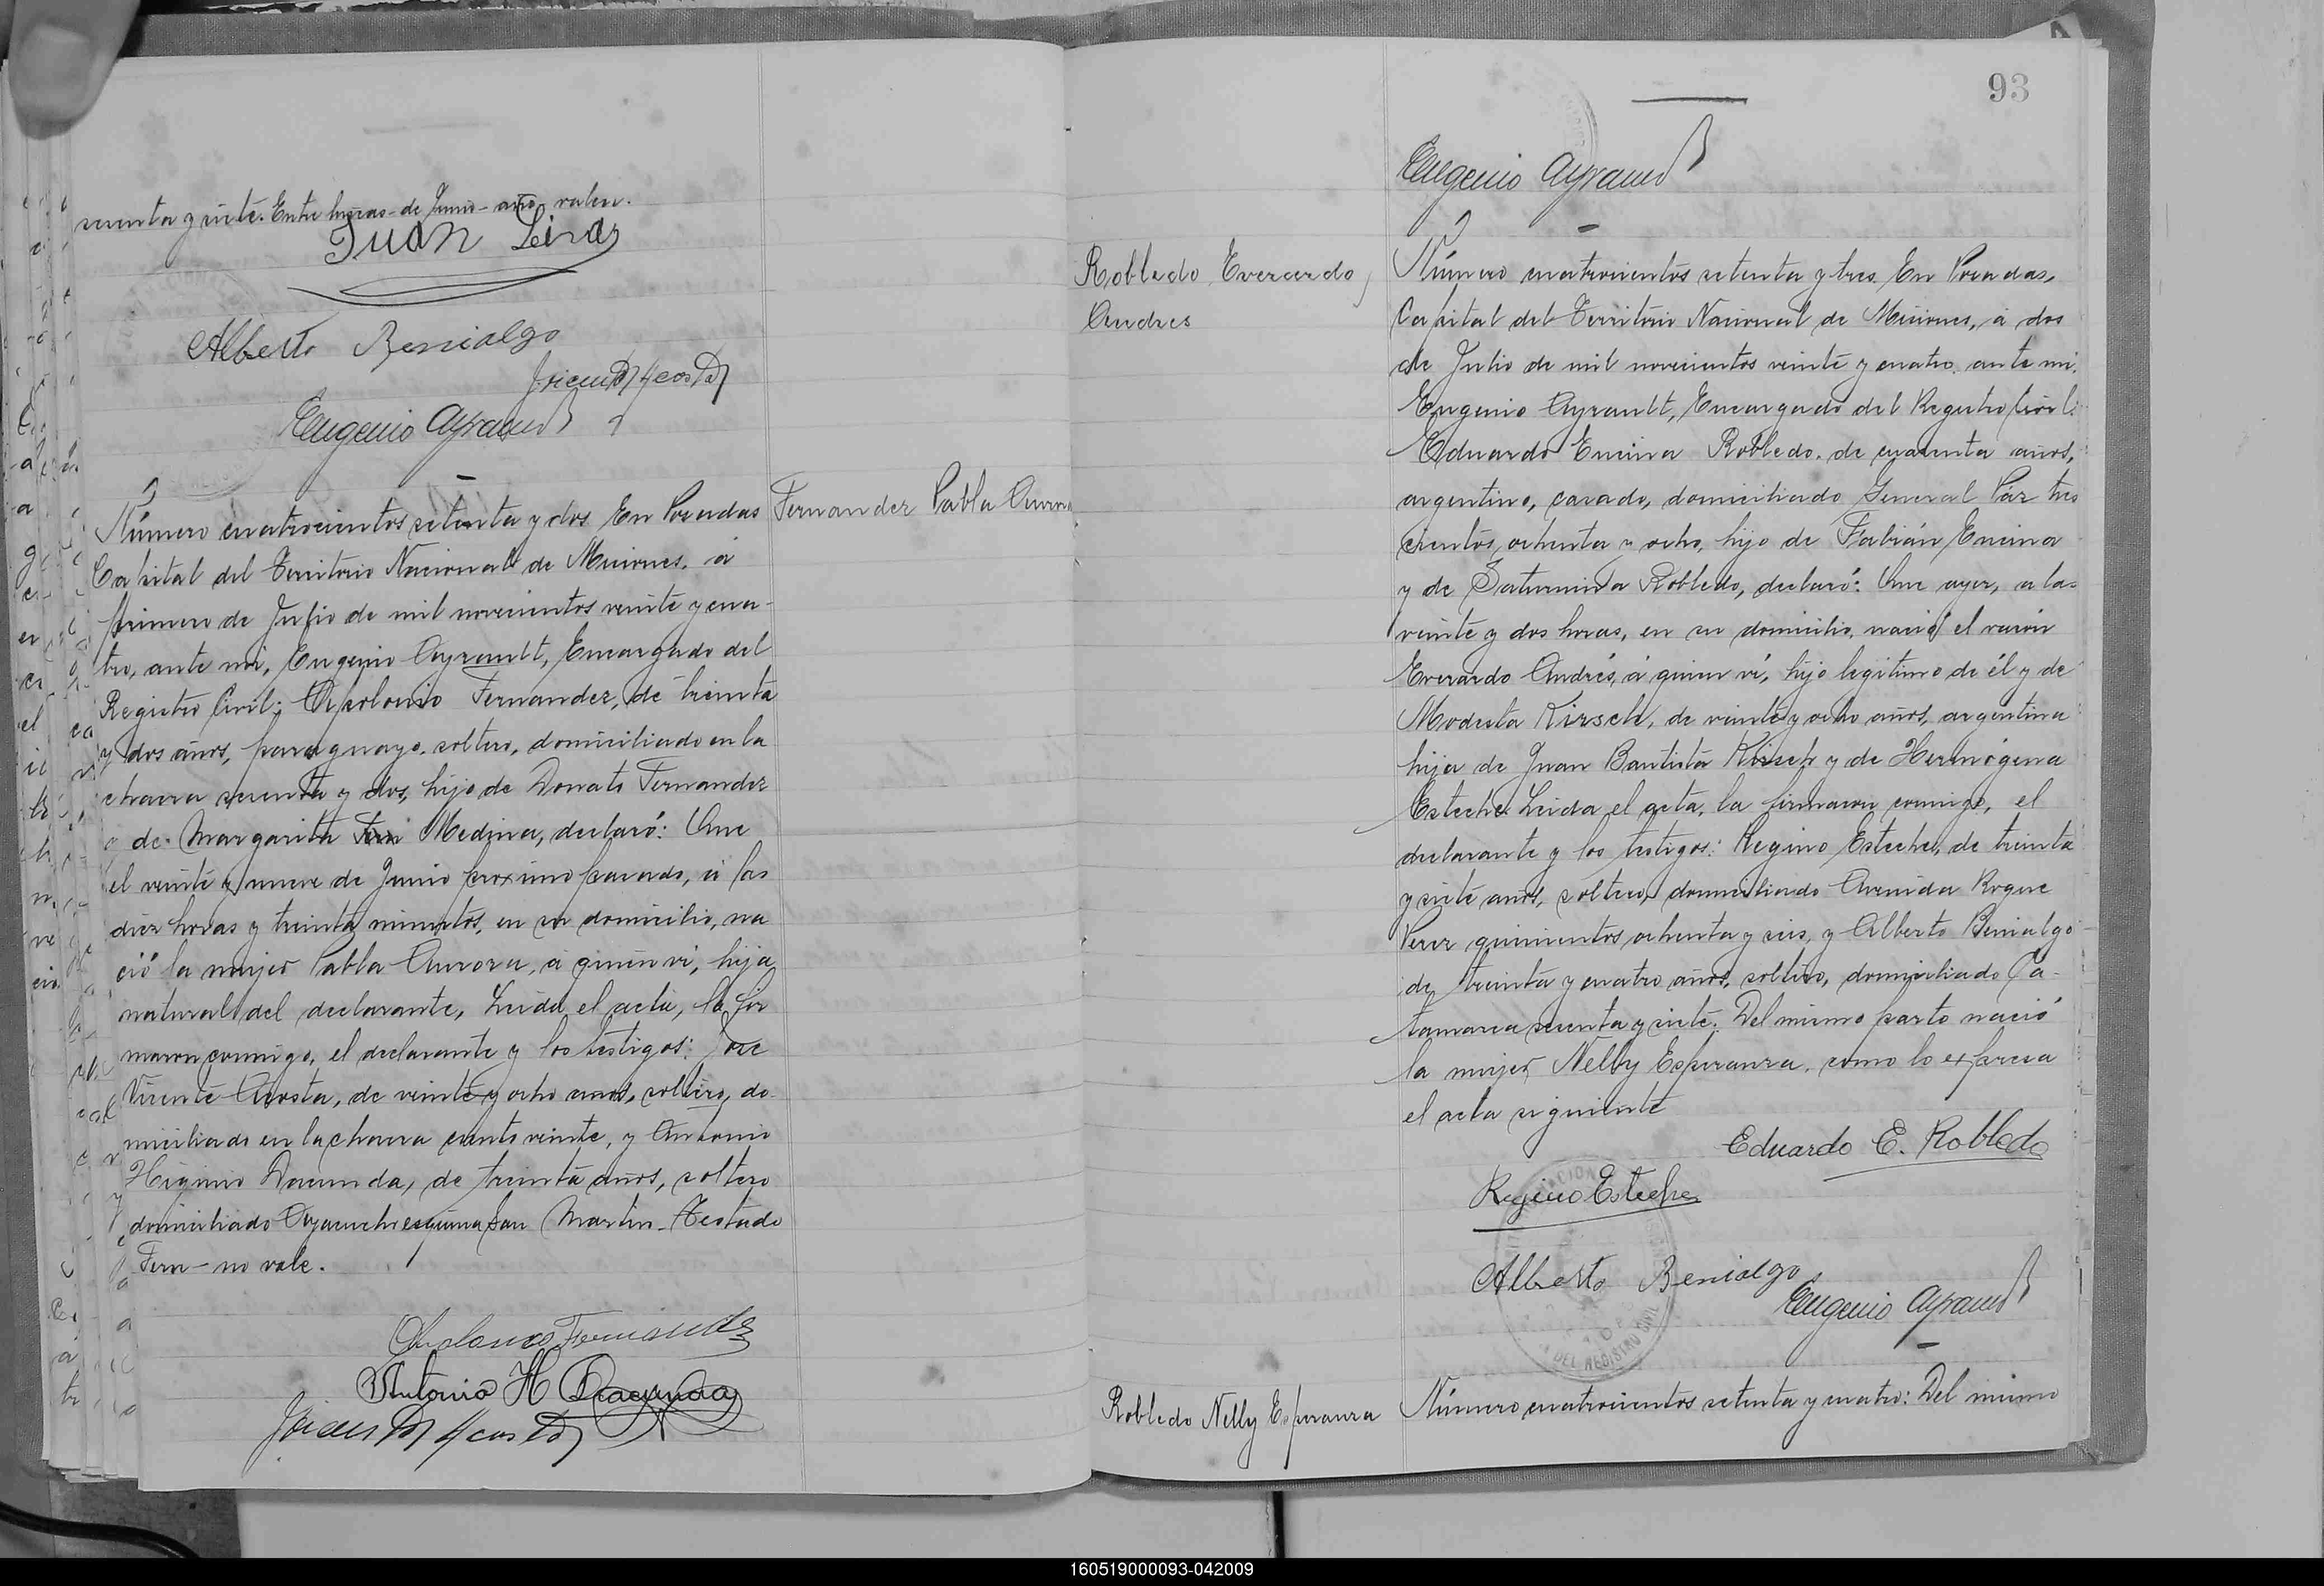 senta y siete. Entre líneas - de Junio - año - valen.
Juan Leiras
Alberto Benialgo
Vicente Acosta
Eugenio Ayrault
Número cuatrocientos setenta y dos En Posadas
Capital del Territorio Nacional de Misiones, á
primero de Julio de mil novecientos veinte y cua-
tro, ante mi, Eugenio Ayrault, Encargado del
Registro Civil; Apolonio Fernandez, de treinta
y dos años, paraguayo, soltero, domiciliado en la
chacra sesenta y dos, hijo de Donato Fernandez
y de Margarita Fern Medina, declaró: Que
el veinte y nueve de Junio proximo pasado, á las
diez horas y treinta minutos, en su domicilio, na
ció la mujer Pabla Aurora, á quien vi, hija
natural del declarante, Leida el acta, la fir
maron conmigo, el declarante y los testigos: José
Vicente Acosta, de veinte y ocho años, soltero, do
miciliado en la chacra ciento veinte, y Antonio
Higinio Dacunda, de treinta años, soltero
domiciliado Ayacucho esquina San Martin - Testado
Fern - no vale.
Apolonio Fernandez
Antonio H Dacunda
Vicente Acosta
Fernandez Pabla Aurora
93
Eugenio Ayrault
Robledo Everardo
Andres
Número cuatrocientos setenta y tres. En Posadas,
Capital del Territorio Nacional de Misiones, á dos
de Julio de mil novecientos veinte y cuatro, ante mi,
Eugenio Ayrault, Encargado del Registro Civil:
Eduardo Encina Robledo, de cuarenta años,
argentino, casado, domiciliado General Paz tres
cientos ochenta y ocho, hijo de Fabián Encina
y de Saturnina Robledo, declaró: Que ayer, a las
veinte y dos horas, en su domicilio, nació el varón
Everardo Andrés, á quien vi, hijo legitimo de él y de
Modesta Kirsch, de veinte y ocho años, argentina
hija de Juan Bautista Kirsch y de Hermógena
Esteche. Leida el acta, la firmaron conmigo, el
declarante y los testigos: Regino Esteche, de treinta
y siete años, soltero, domiciliado Avenida Roque
Perez quinientos ochenta y seis, y Alberto Benialgo
de treinta y cuatro años, soltero, domiciliado Ca-
tamarca sesenta y siete. Del mismo parto nació
la mujer, Nelly Esperanza, como lo expresa
el acta siguiente
Eduardo E. Robledo
Regino Esteche
Alberto Benialgo
Eugenio Ayrault
DEL REGISTRO CIVIL
Robledo Nelly Esperanza
Número cuatrocientos setenta y cuatro: Del mismo
160519000093-042009